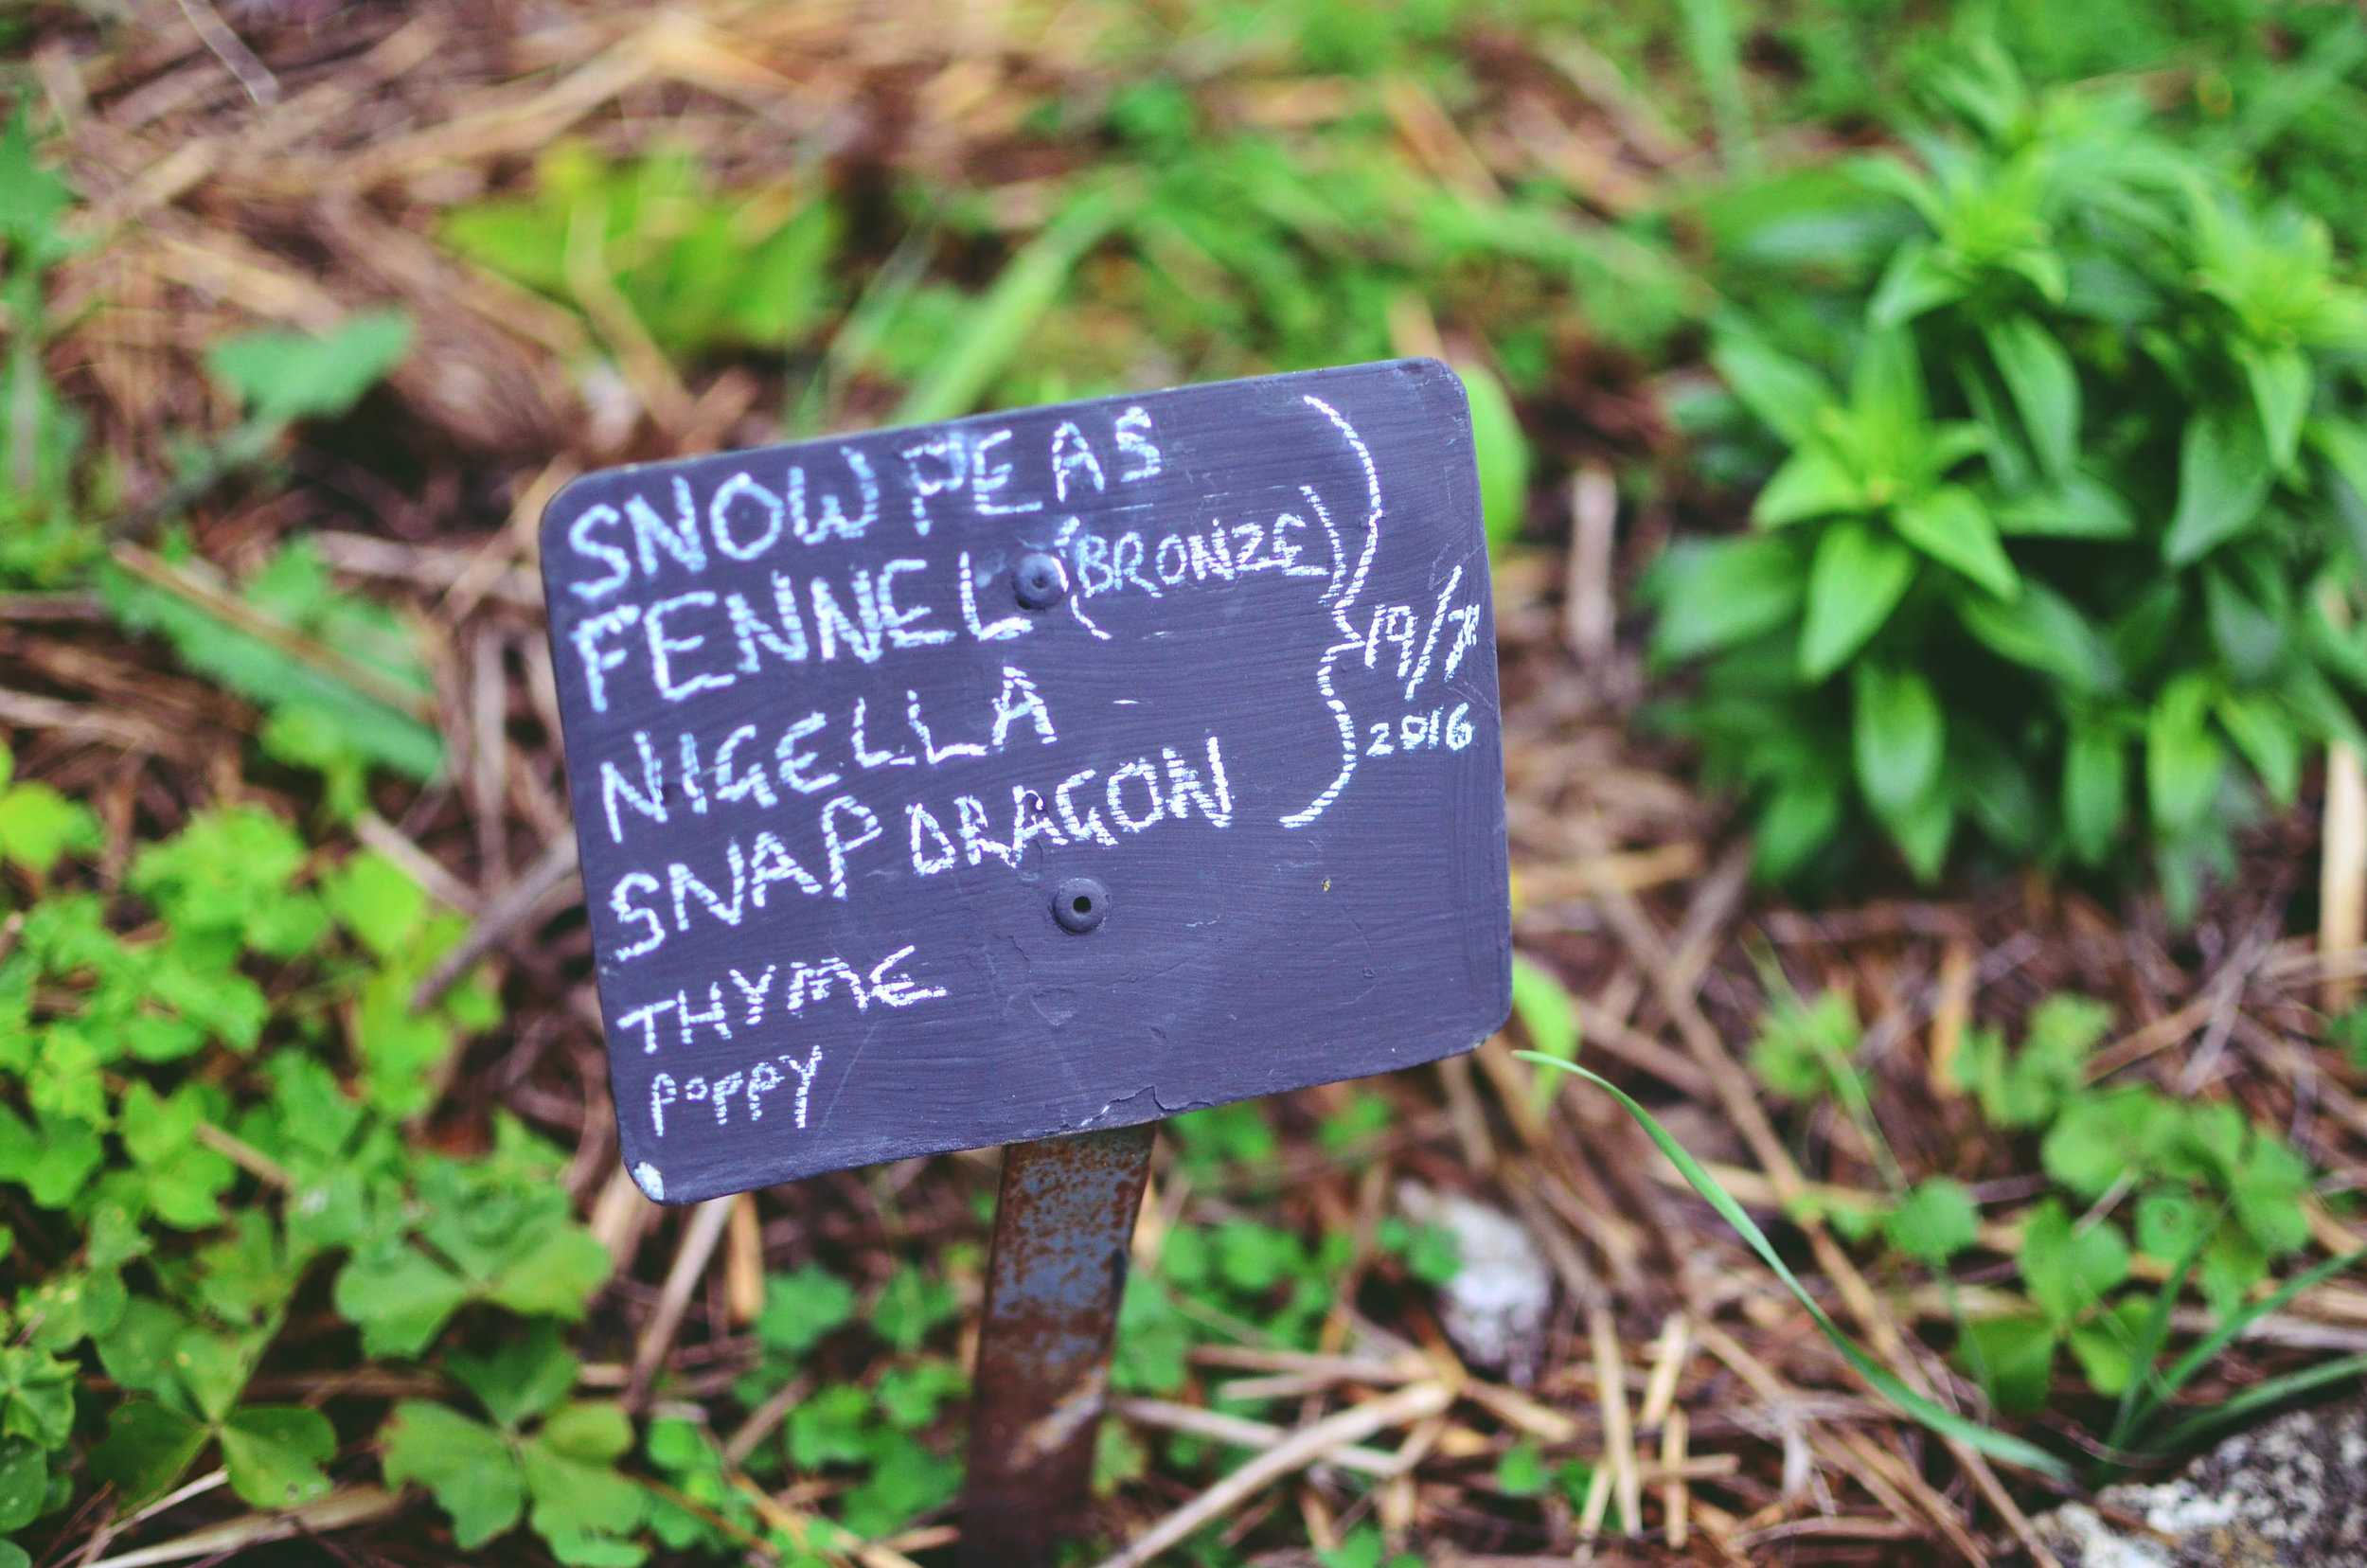 SNOW PEAS
FENNEL (BRONZE)
19/7
2016
NIGELLA
SNAP DRAGON
THYME
POPPY